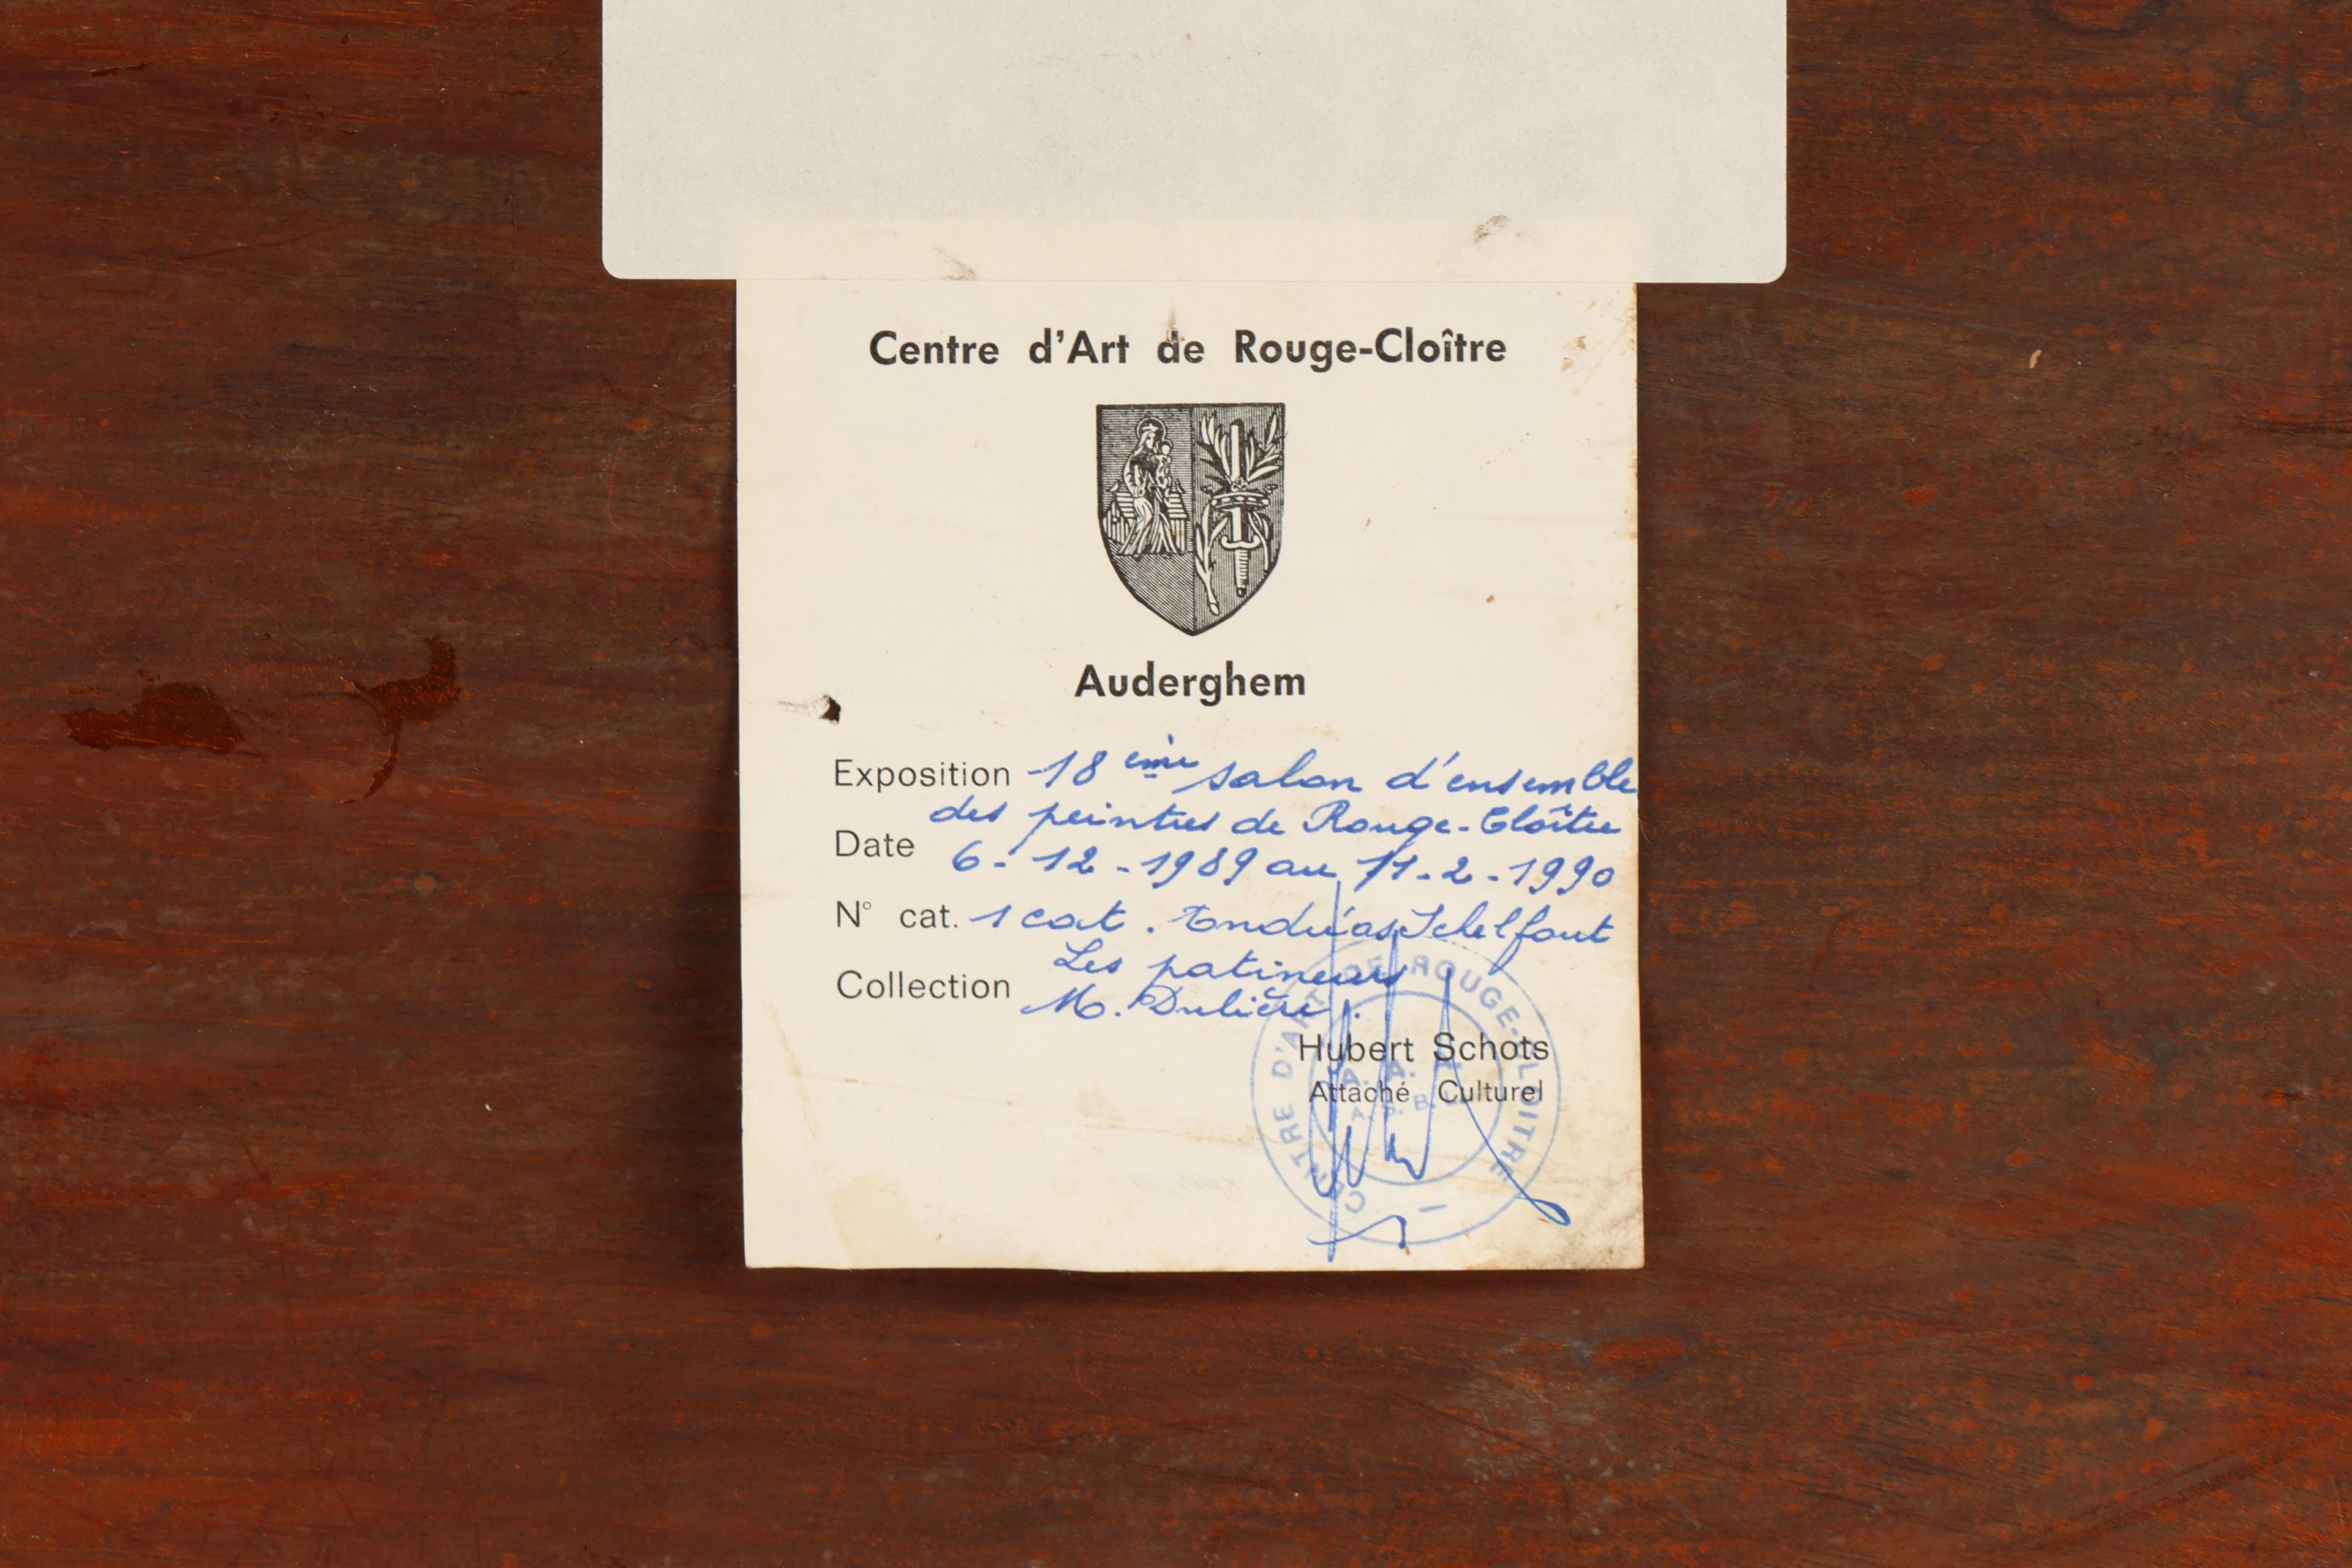 Centre d'Art de Rouge-Cloître
Auderghem
Exposition 18 ème salon d'ensemble
des peintres de Rouge-Cloître
Date 6-12-1989 au 11-2-1990
N° cat. 1 cat. Andréas Schelfout
Les patineurs
Collection M. Dulière.
Hubert Schots
Attaché Culturel
CENTRE D'ART DE ROUGE-CLOITRE
A.S.B.L.